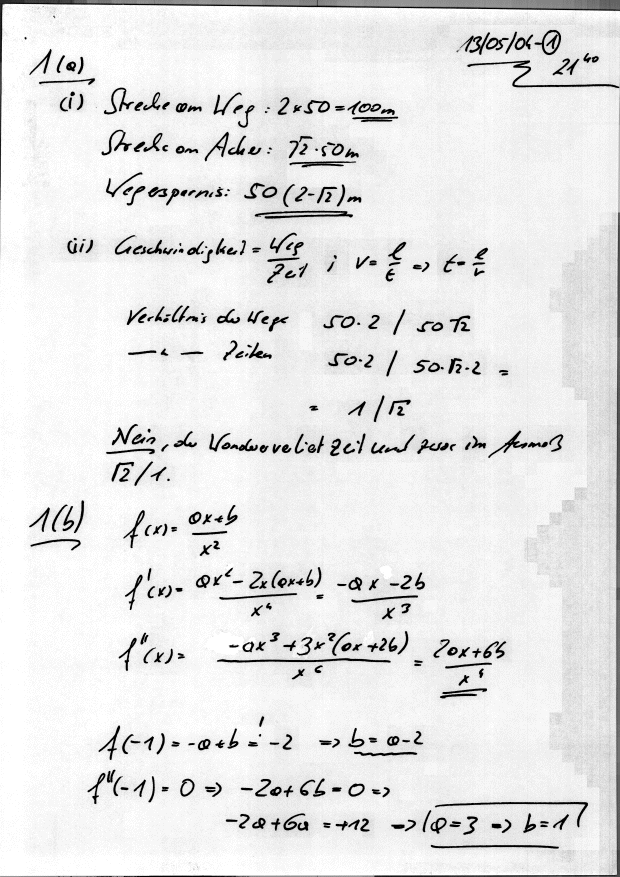 13/05/04-①
21⁴⁰
1(a)
(i) Strecke am Weg: 2×50=100m
Strecke am Acker: √2·50m
Wegersparnis: 50(2-√2)m
(ii) Geschwindigkeit = Weg/Zeit ; v = l/t => t = l/v
Verhältnis der Wege 50·2 / 50√2
—"— Zeiten 50·2 / 50·√2·2 =
= 1/√2
Nein, der Wanderer verliert Zeit und zwar im Ausmaß
√2/1.
1(b) f(x) = (ax+b)/x²
f'(x) = (ax²-2x(ax+b))/x⁴ = (-ax-2b)/x³
f''(x) = (-ax³+3x²(ax+2b))/x⁶ = (2ax+6b)/x⁴
f(-1) = -a+b =! -2 => b=a-2
f''(-1) = 0 => -2a+6b=0 =>
-2a+6a = +12 => a=3 => b=1